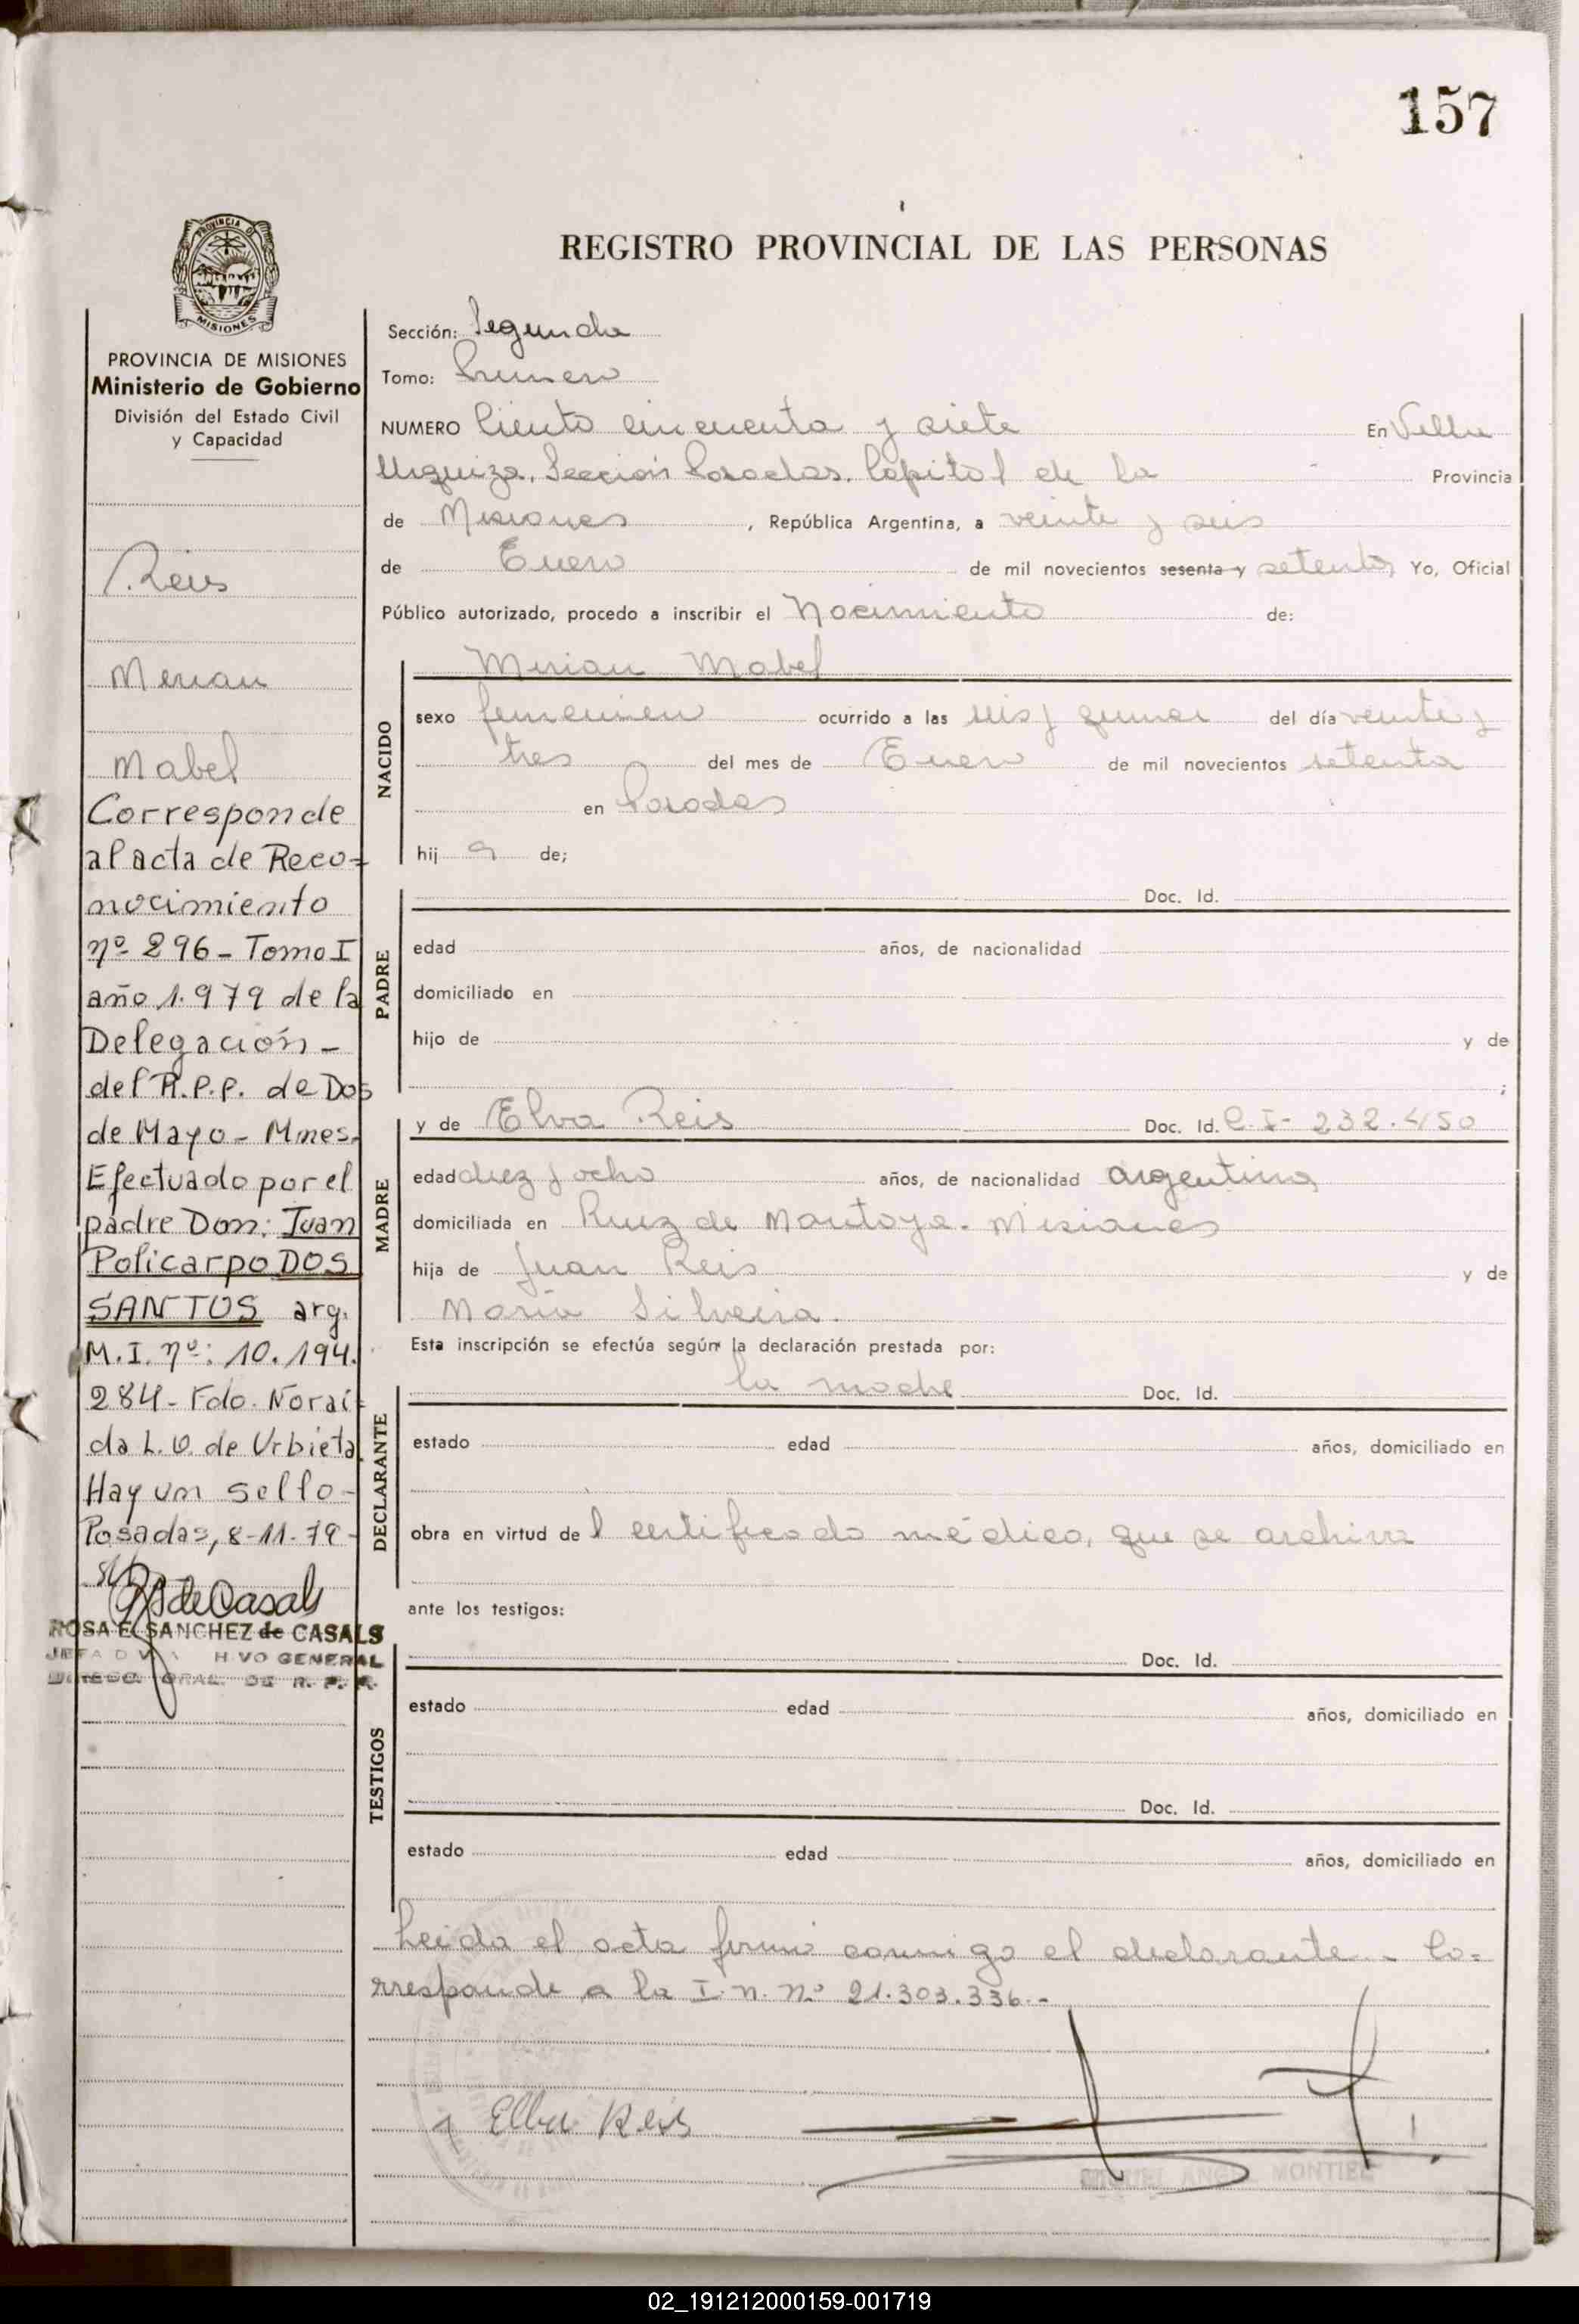 157
PROVINCIA DE
MISIONES
REGISTRO PROVINCIAL DE LAS PERSONAS
PROVINCIA DE MISIONES
Ministerio de Gobierno
División del Estado Civil
y Capacidad
Reis
Merian
Mabel
Corresponde
al acta de Reco-
nocimiento
nº 296 - Tomo I
año 1.979 de la
Delegación -
del R.P.P. de Dos
de Mayo - Mnes.
Efectuado por el
padre Don: Juan
Policarpo DOS
SANTOS arg.
M.I. nº: 10.194.
284 - Fdo. Norai-
da L. V. de Urbieta
Hay un sello -
Posadas, 8-11-79 -
ROSA E. SANCHEZ de CASALS
GENERAL
DE R. P. P.
Sección: Segunda
Tomo: Primero
NUMERO Ciento cincuenta y siete En Villa
Urquiza, Sección Posadas, Capital de la Provincia
de Misiones, República Argentina, a veinte y seis
de Enero de mil novecientos sesenta y setenta, Yo, Oficial
Público autorizado, procedo a inscribir el Nacimiento de:
NACIDO
Mirian Mabel
sexo femenino ocurrido a las seis y quince del día veinte y
tres del mes de Enero de mil novecientos setenta
en Posadas
hij a de;
PADRE
Doc. Id.
edad años, de nacionalidad
domiciliado en
hijo de y de
;
MADRE
y de Elva Reis Doc. Id. C.I- 232.450
edad diez y ocho años, de nacionalidad argentina
domiciliada en Ruiz de Montoya - Misiones
hija de Juan Reis y de
María Silveira.
Esta inscripción se efectúa según la declaración prestada por:
DECLARANTE
la madre Doc. Id.
estado edad años, domiciliado en
obra en virtud de l certificado médico, que se archiva
ante los testigos:
TESTIGOS
Doc. Id.
estado edad años, domiciliado en
Doc. Id.
estado edad años, domiciliado en
Leida el acta firmó conmigo el declarante - Co=
rresponde a la I.N. Nº 21.303.336.-
Elba Reis
MIGUEL ANGEL MONTIEL
02_191212000159-001719